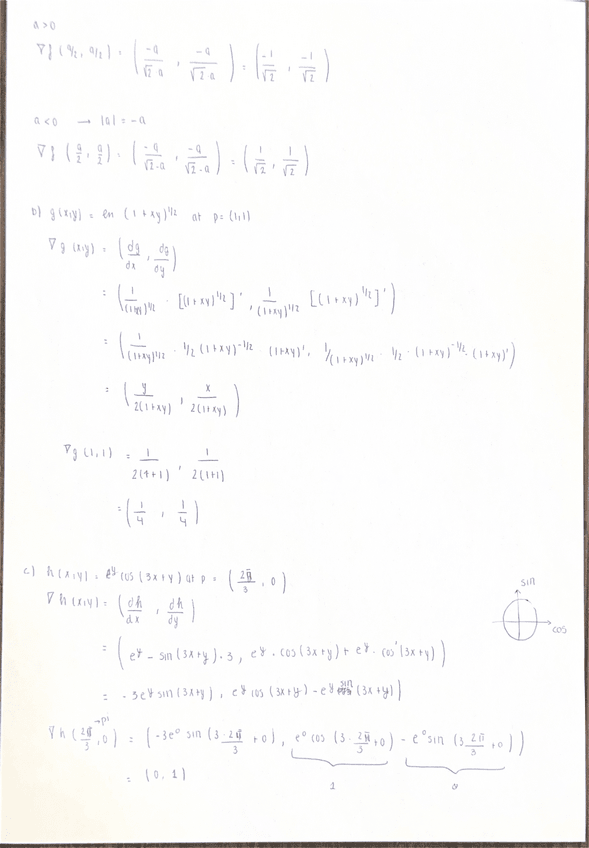 a>0
∇f (a/2, a/2) = (-a/√2·a , -a/√2·a) = (-1/√2 , -1/√2)
a<0 → |a| = -a
∇f (a/2, a/2) = (-a/√2-a , -a/√2-a) = (1/√2 , 1/√2)
b) g(x,y) = ln (1+xy)^1/2 at p=(1,1)
∇g (x,y) = (dg/dx , dg/dy)
= (1/(1+xy)^1/2 · [(1+xy)^1/2]' , 1/(1+xy)^1/2 [(1+xy)^1/2]')
= (1/(1+xy)^1/2 · 1/2 (1+xy)^-1/2 · (1+xy)', 1/(1+xy)^1/2 · 1/2 · (1+xy)^-1/2 · (1+xy)')
= (y/2(1+xy) , x/2(1+xy))
∇g (1,1) = 1/2(1+1) , 1/2(1+1)
= (1/4 , 1/4)
c) h(x,y) = e^y cos (3x+y) at p = (2π/3 , 0)
sin
cos
∇h(x,y) = (dh/dx , dh/dy)
= (e^y - sin (3x+y)·3 , e^y · cos(3x+y) + e^y · cos'(3x+y))
= -3e^y sin(3x+y) , e^y cos (3x+y) - e^y sin (3x+y))
→pi
∇h (2π/3 , 0) = (-3e^0 sin (3·2π/3 + 0) , e^0 cos (3·2π/3 + 0) - e^0 sin (3 2π/3 + 0))
= (0, 1)
1 0